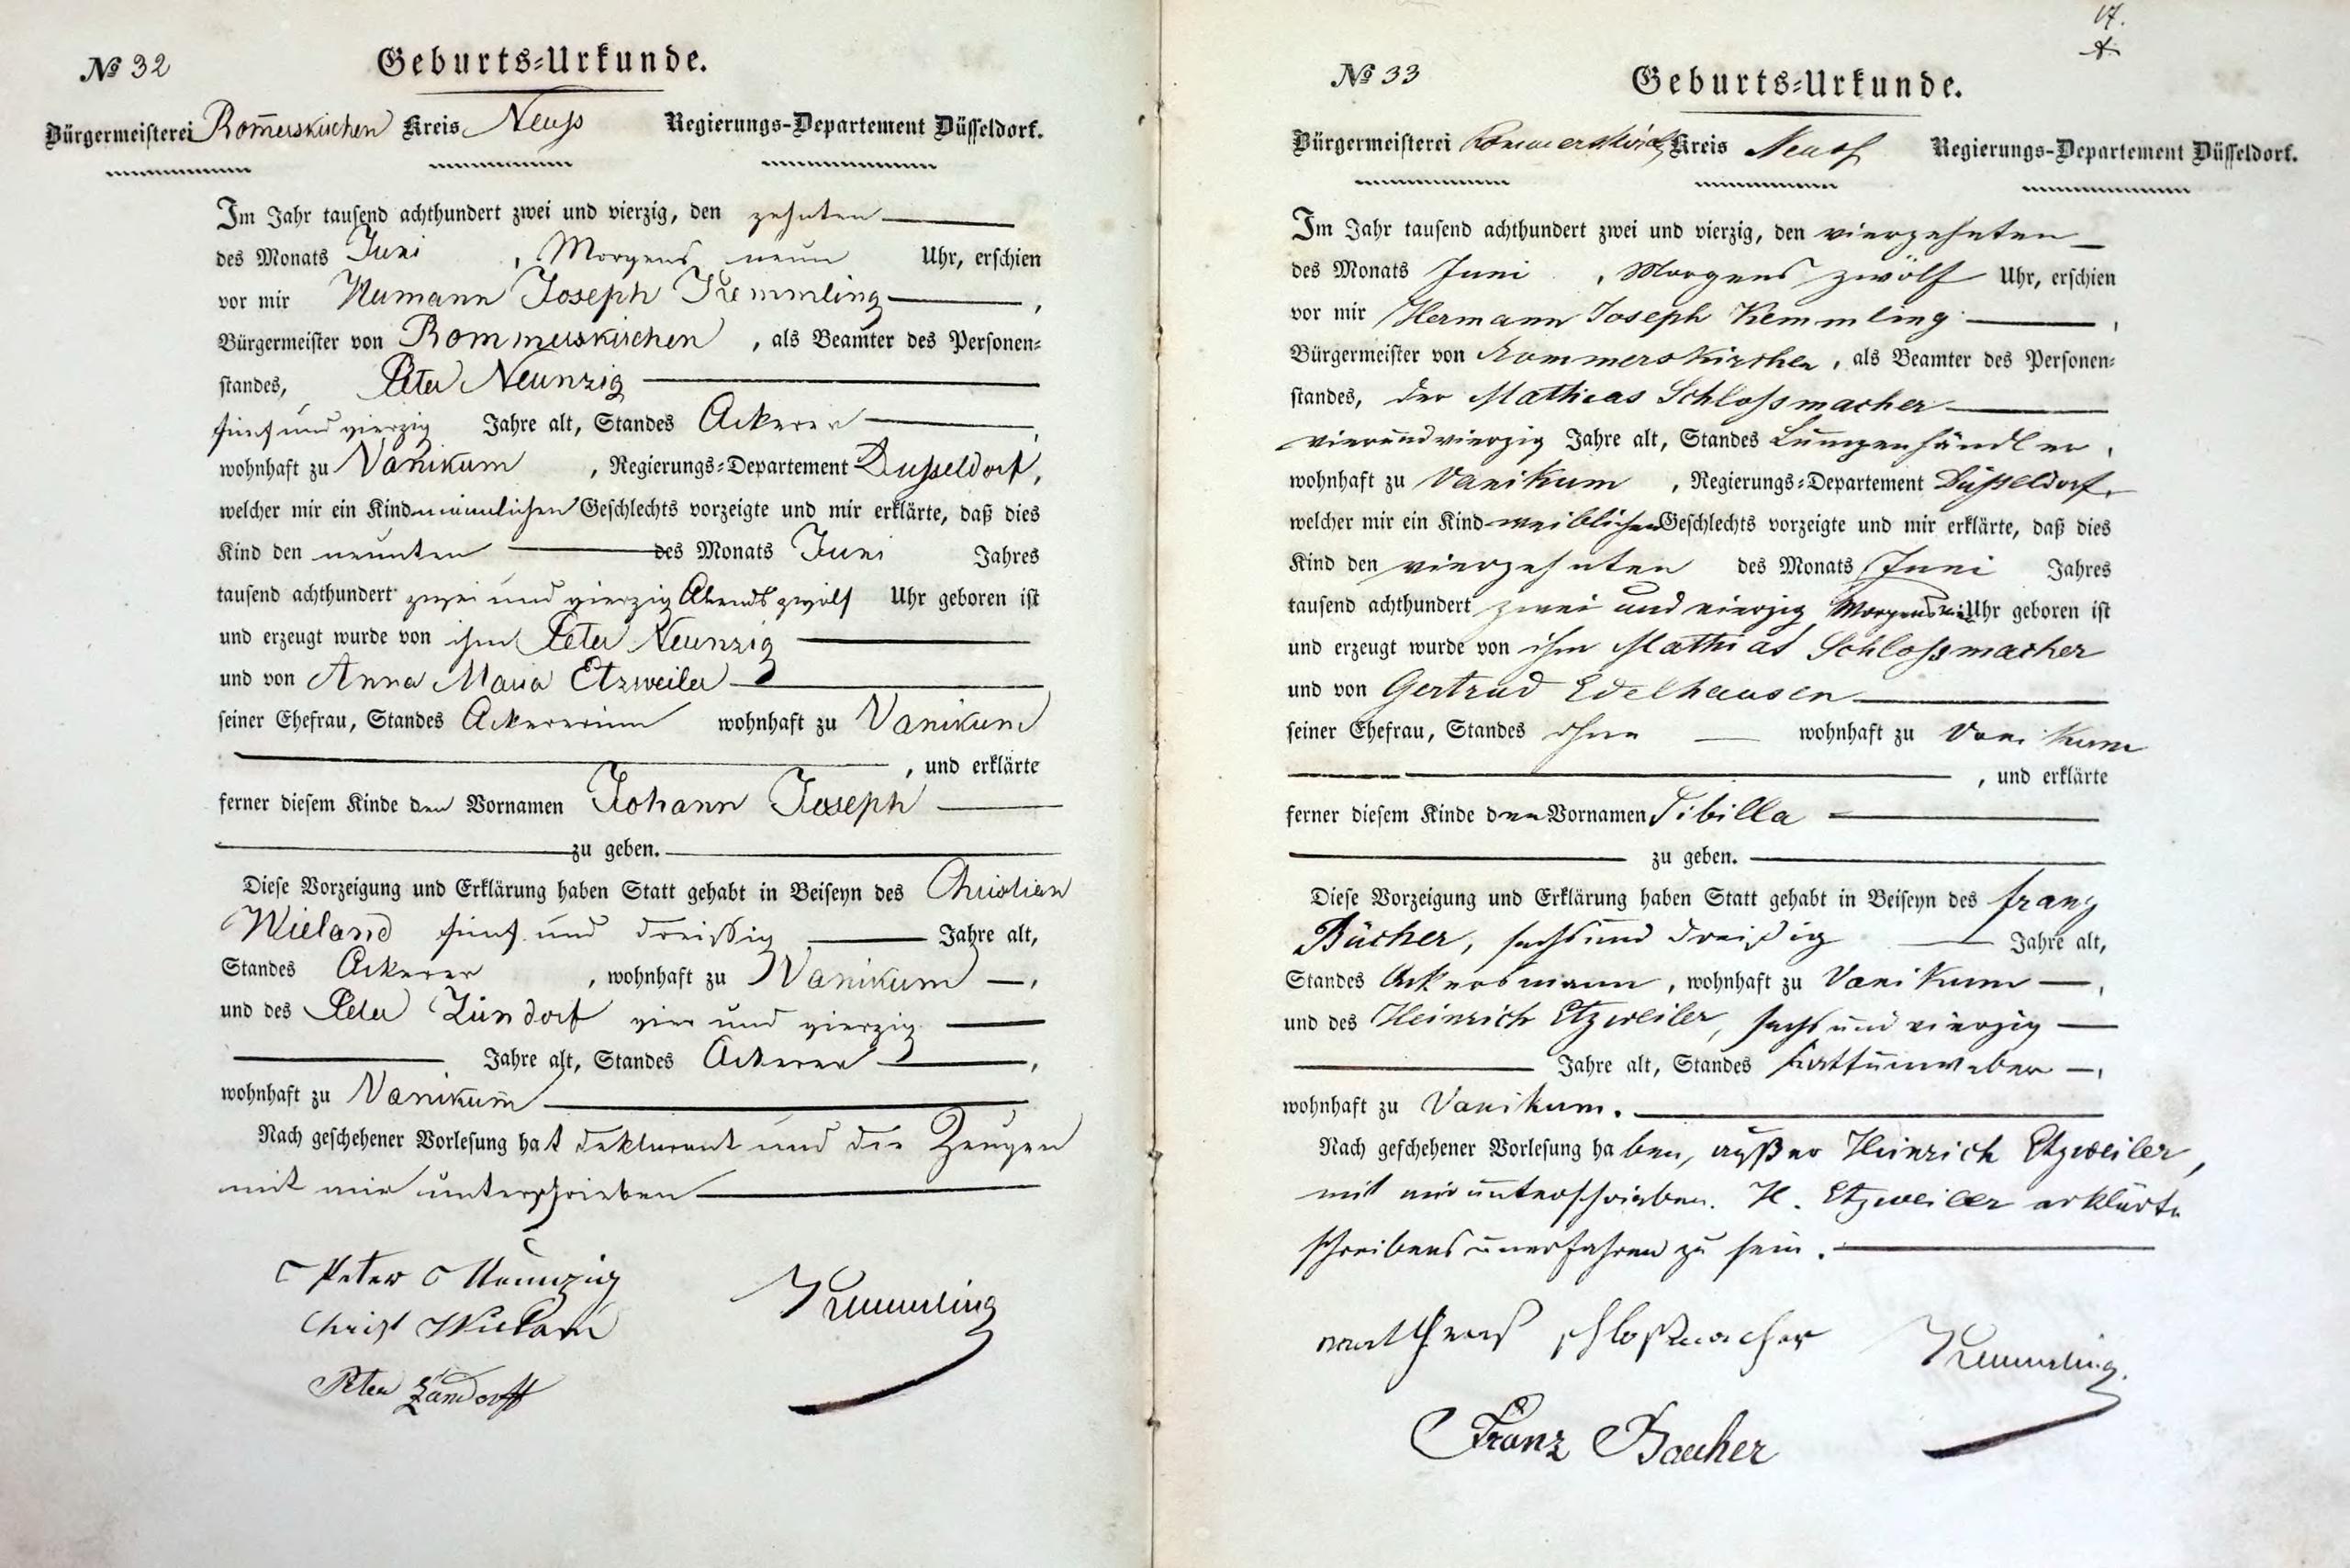 № 32
Geburts-Urkunde.
Bürgermeisterei Rom̅erskirchen Kreis Neuss Regierungs-Departement Düsseldorf.
Im Jahr tausend achthundert zwei und vierzig, den zehnten
des Monats Juni , Morgens neun Uhr, erschien
vor mir Hermann Joseph Kemmling ,
Bürgermeister von Rommerskirchen , als Beamter des Personen-
standes, Peter Neunzig
fünf und vierzig Jahre alt, Standes Ackerer ,
wohnhaft zu Vanikum , Regierungs-Departement Dusseldorf,
welcher mir ein Kind männlichen Geschlechts vorzeigte und mir erklärte, daß dies
Kind den neunten des Monats Juni Jahres
tausend achthundert zwei und vierzig Abends zwölf Uhr geboren ist
und erzeugt wurde von ihm Peter Neunzig
und von Anna Maria Etzweiler
seiner Ehefrau, Standes Ackererinn wohnhaft zu Vanikum
, und erklärte
ferner diesem Kinde den Vornamen Johann Joseph
zu geben.
Diese Vorzeigung und Erklärung haben Statt gehabt in Beiseyn des Christian
Wieland fünf und dreissig Jahre alt,
Standes Ackerer , wohnhaft zu Vanikum ,
und des Peter Zündorf vier und vierzig
Jahre alt, Standes Ackerer ,
wohnhaft zu Vanikum
Nach geschehener Vorlesung hat Deklarant und die Zeugen
mit mir unterschrieben
Peter Neunzig
Christ Wieland
Kemmling
Peter Zündorff
17.
№ 33
Geburts-Urkunde.
Bürgermeisterei Rommerskirch Kreis Neuss Regierungs-Departement Düsseldorf.
Im Jahr tausend achthundert zwei und vierzig, den vierzehnten
des Monats Juni , Morgens zwölf Uhr, erschien
vor mir Hermann Joseph Kemmling ,
Bürgermeister von Rommerskirchen , als Beamter des Personen-
standes, der Mathias Schlossmacher
vierundvierzig Jahre alt, Standes Lumpenhändler ,
wohnhaft zu Vanikum , Regierungs-Departement Düsseldorf,
welcher mir ein Kind weiblichen Geschlechts vorzeigte und mir erklärte, daß dies
Kind den vierzehnten des Monats Juni Jahres
tausend achthundert zwei und vierzig Morgens Uhr geboren ist
und erzeugt wurde von ihm Mathias Schlossmacher
und von Gertrud Edelhausen
seiner Ehefrau, Standes ohne wohnhaft zu Vanikum
, und erklärte
ferner diesem Kinde den Vornamen Sibilla
zu geben.
Diese Vorzeigung und Erklärung haben Statt gehabt in Beiseyn des Franz
Bücher, sechs und dreißig Jahre alt,
Standes Ackersmann, wohnhaft zu Vanikum ,
und des Heinrich Etzweiler, sechs und vierzig
Jahre alt, Standes Kattunweber ,
wohnhaft zu Vanikum.
Nach geschehener Vorlesung haben, außer Heinrich Etzweiler,
mit mir unterschrieben. H. Etzweiler erklärte
schreibens unerfahren zu sein.
Mattheas schloßmacher
Kemmling.
Franz Baecher